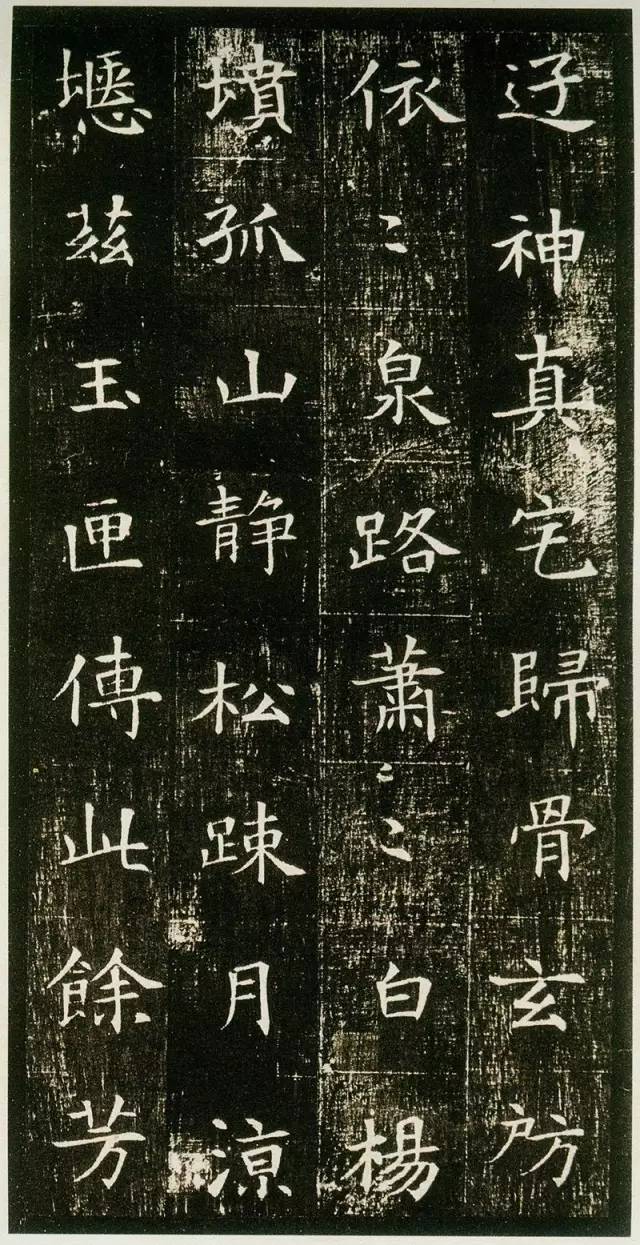 神真宅歸骨玄房
依〻泉路蕭〻白楊
墳孤山静松踈月凉
兹玉匣傳此餘芳